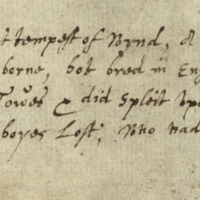 t tempest of Wynd, A
borne, bot bred in En
Towes & did Spleit Vpo
boyes Lost, Who had